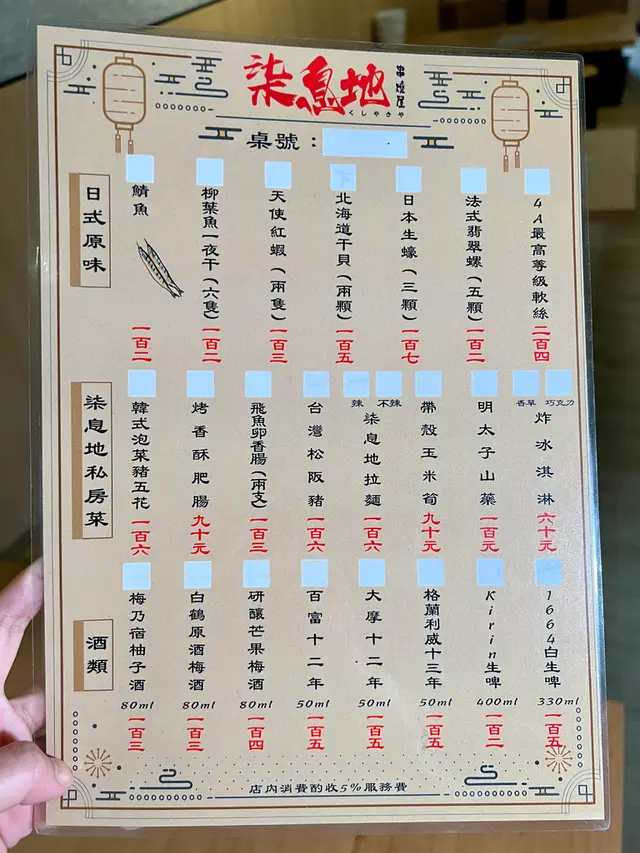 柒息地
串燒屋
くしやきや
桌號：
日式原味
鯖魚 一百二
柳葉魚一夜干(六隻) 一百二
天使紅蝦(兩隻) 一百三
北海道干貝(兩顆) 一百五
日本生蠔(三顆) 一百七
法式翡翠螺(五顆) 一百二
4A最高等級軟絲 二百四
柒息地私房菜
韓式泡菜豬五花 一百六
烤香酥肥腸 九十元
飛魚卵香腸(兩支) 一百三
台灣松阪豬 一百六
辣 不辣
柒息地拉麵 一百六
帶殼玉米筍 九十元
明太子山藥 一百元
香草 巧克力
炸冰淇淋 六十元
酒類
梅乃宿柚子酒 80ml 一百三
白鶴原酒梅酒 80ml 一百三
研釀芒果梅酒 80ml 一百四
百富十二年 50ml 一百五
大摩十二年 50ml 一百五
格蘭利威十三年 50ml 一百五
Kirin生啤 400ml 一百二
1664白生啤 330ml 一百五
店內消費酌收5%服務費